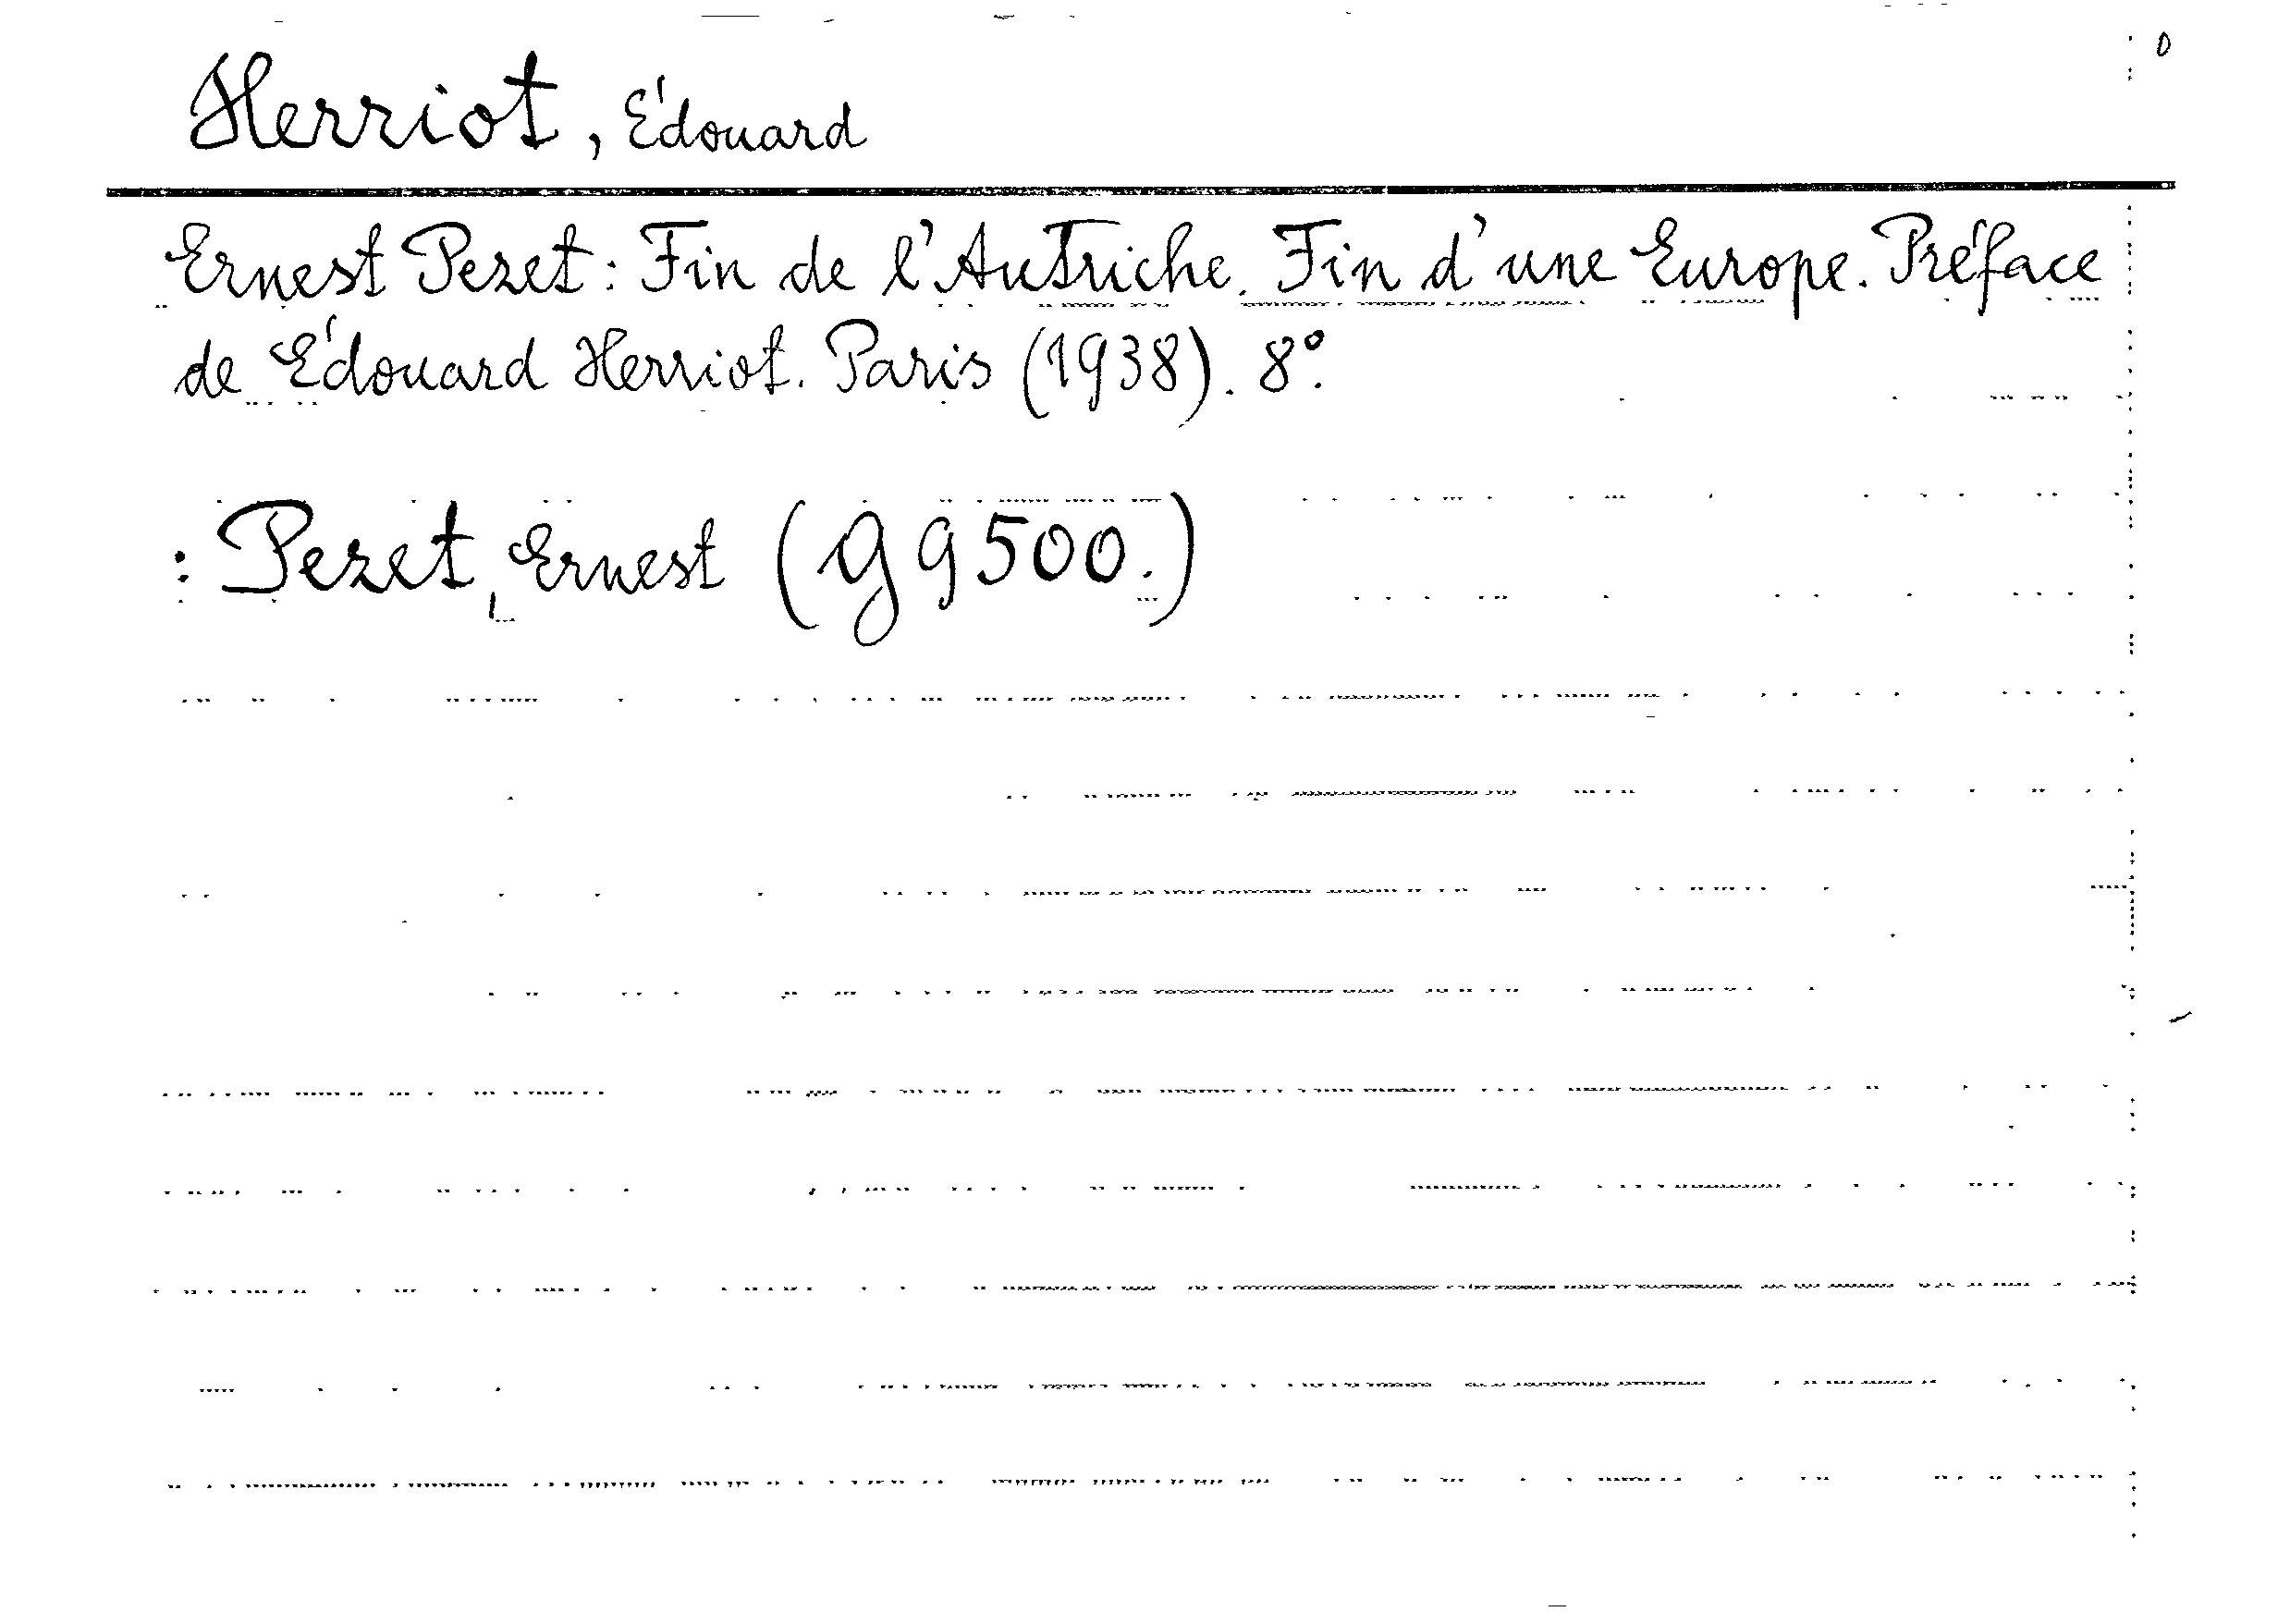 Herriot, Édouard
Ernest Pezet: Fin de l'Autriche. Fin d'une Europe. Préface
de Édouard Herriot. Paris (1938). 8°.
: Pezet, Ernest (g 9500.)